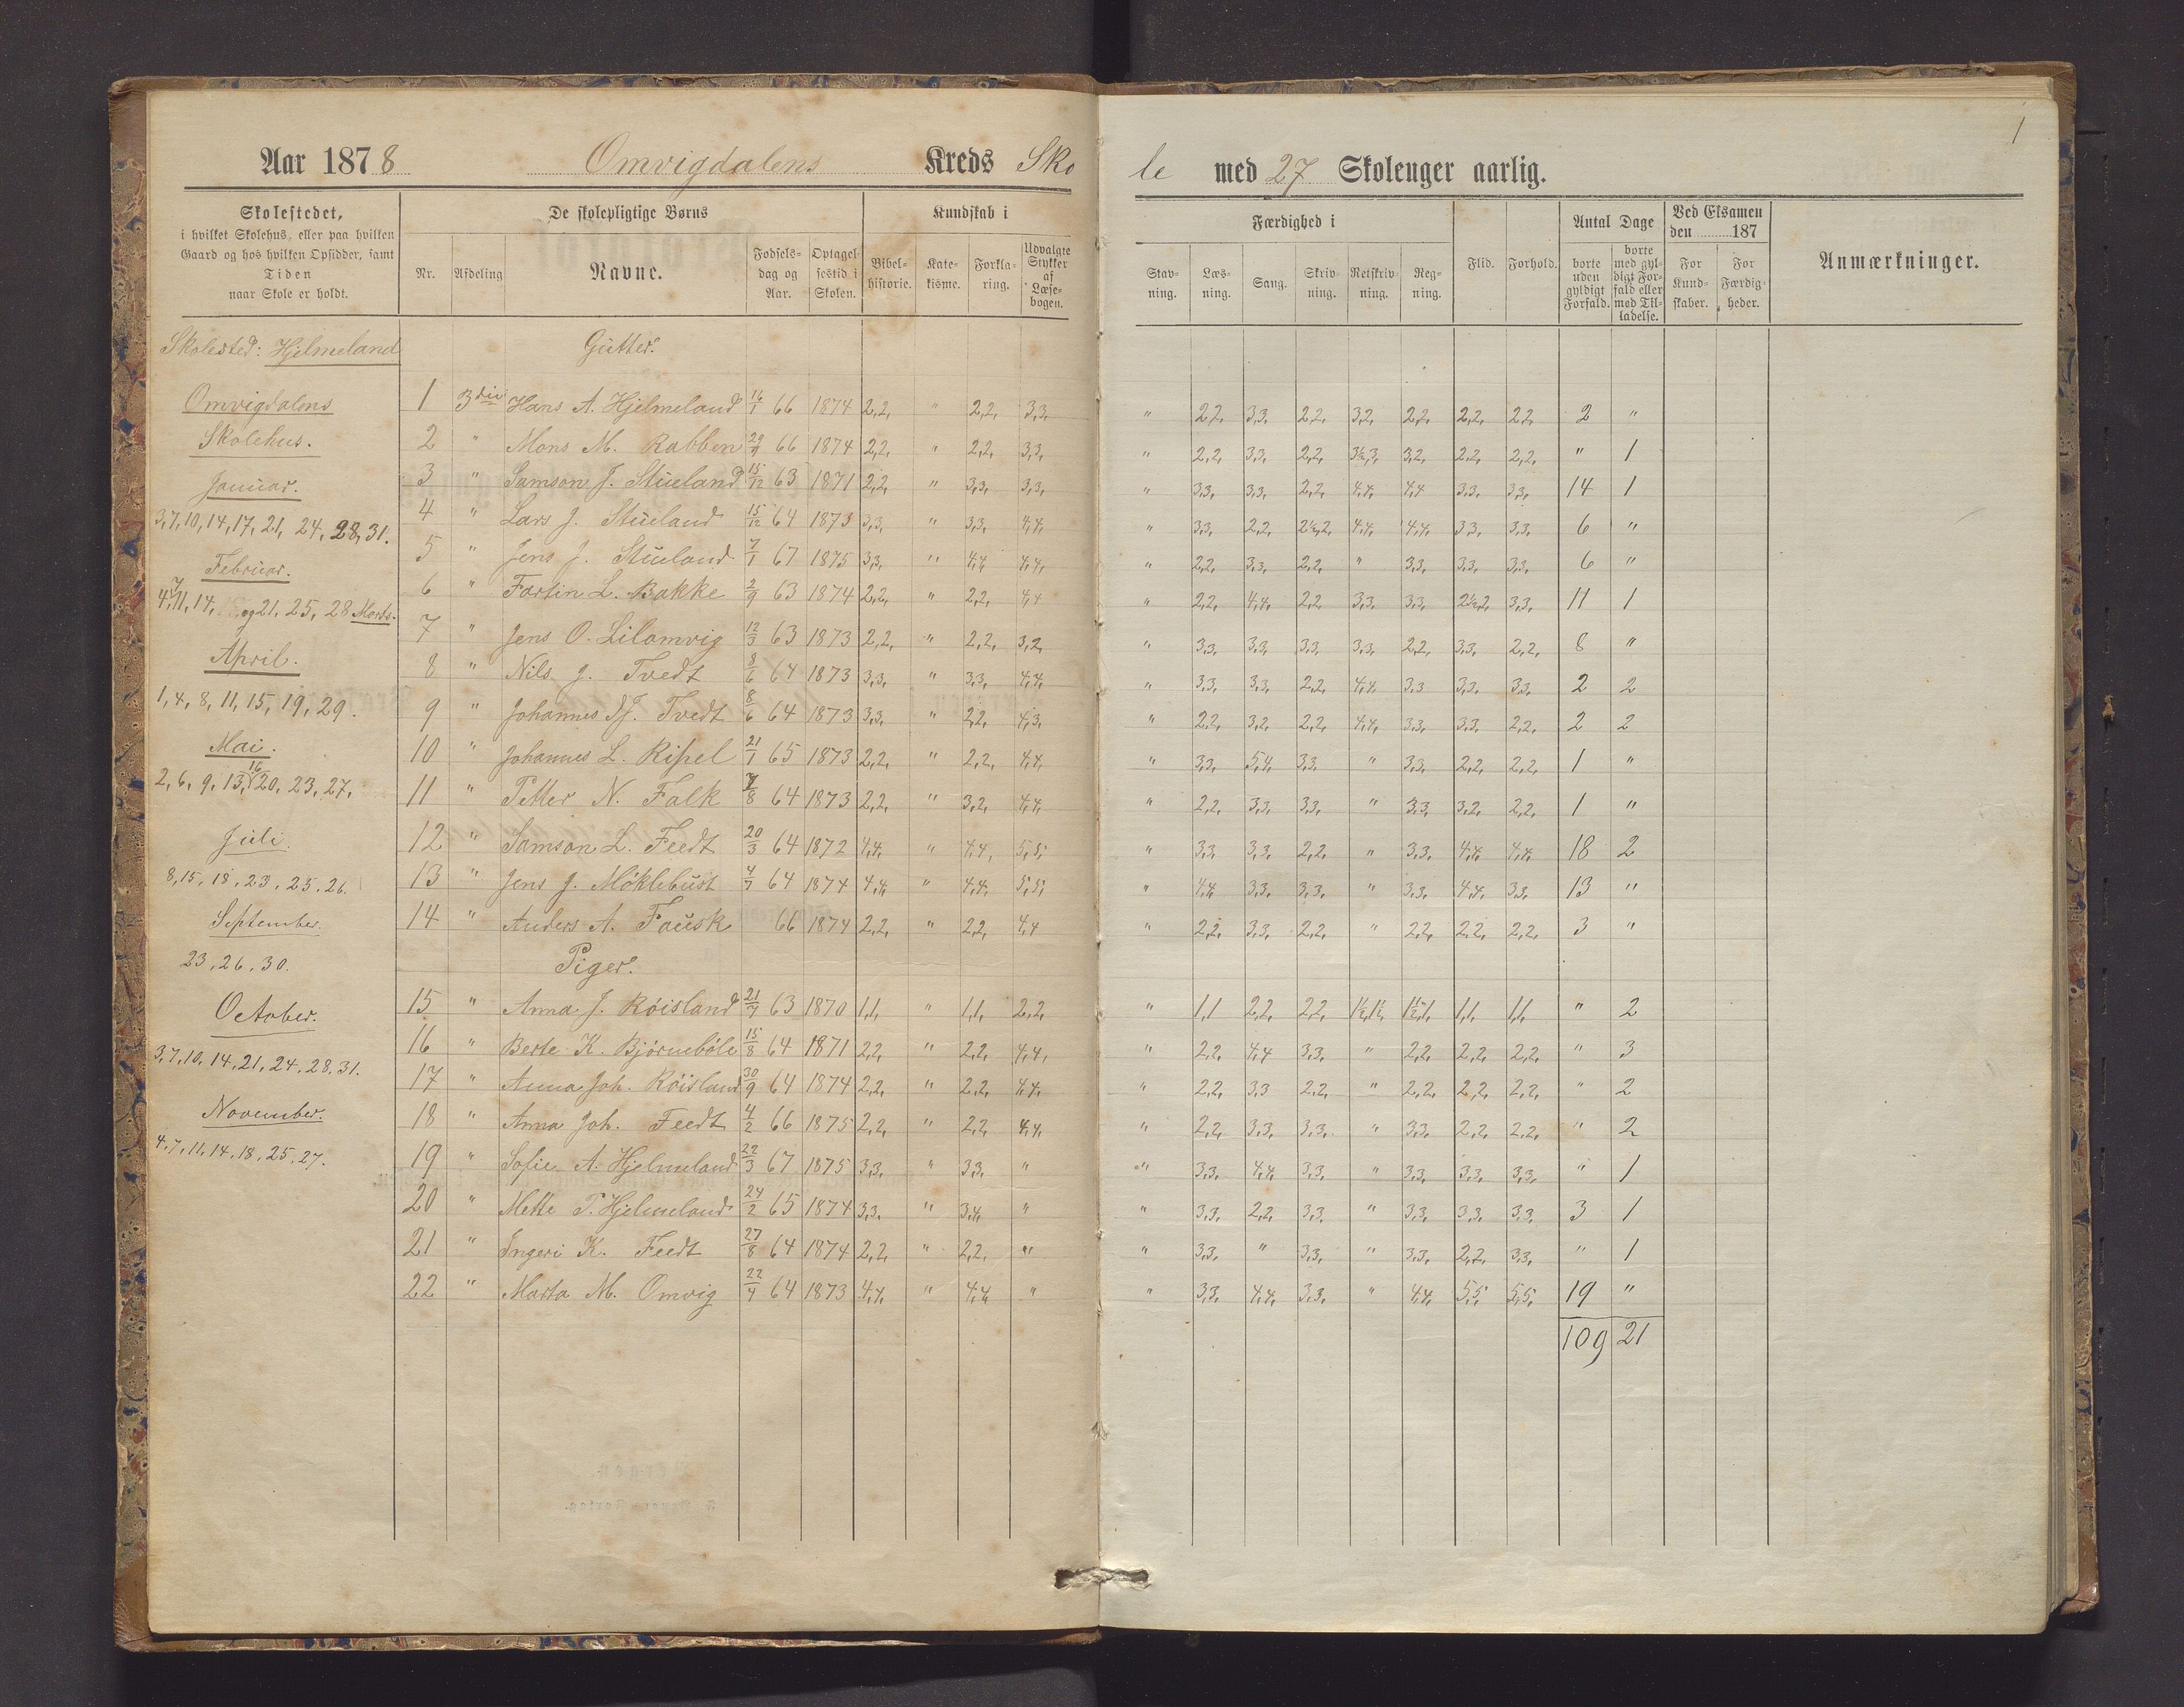 1
Aar 1878 Omvigdalens Kreds Skole med 27 Skoleuger aarlig.
Skolestedet,
i hvilket Skolehus, eller paa hvilken
Gaard og hos hvilken Opsidder, samt
Tiden
naar Skole er holdt.
De skolepligtige Børns
Nr. Afdeling Navne. Fødselsdag og Aar. Optagelsestid i Skolen.
Kundskab i
Bibelhistorie. Katekisme. Forklaring. Udvalgte Stykker af Læsebogen.
Færdighed i
Stavning. Læsning. Sang. Skrivning. Retskrivning. Regning.
Flid. Forhold.
Antal Dage
borte uden gyldigt Forfald. borte med gyldigt Forfald eller med Tilladelse.
Ved Eksamen den 187
For Kundskaber. For Færdigheder.
Anmærkninger.
Skolested: Hjelmeland
Omvigdalens
Skolehus.
Januar.
3, 7, 10, 14, 17, 21, 24, 28, 31.
Februar.
4, 7, 11, 14, og 21, 25, 28 Marts.
April.
1, 4, 8, 11, 15, 19, 29.
Mai.
2, 6, 9, 13, 16 20, 23, 27.
Juli.
8, 15, 18, 23, 25, 26.
September.
23, 26, 30.
October.
3, 7, 10, 14, 21, 24, 28, 31.
November.
4, 7, 11, 14, 18, 25, 27.
Gutter.
1 3die Hans A. Hjelmeland 16/1 66 1874 2,2, " 2,2, 3,3, " 2,2, 3,3, 2,2, 3,2, 2,2, 2,2, 2,2, 2 "
2 " Mons M. Rabben 29/9 66 1874 2,2, " 2,2, 3,3, " 2,2, 3,3, 2,2, 3½,3, 3,2, 2,2, 2,2, " 1
3 " Samson J. Stueland 15/12 63 1871 2,2, " 3,3, 3,3, " 3,3, 3,3, 2,2, 4,4, 4,4 3,3, 3,3, 14 1
4 " Lars J. Stueland 15/12 64 1873 3,3, " 3,3, 4,4, " 3,3, 2,2, 2½,2, 4,4, 4,4, 3,3, 3,3, 6 "
5 " Jens J. Stueland 7/1 67 1875 3,3, " 4,4, 4,4, " 2,2, 3,3, 2,2, " 3,3, 3,3, 3,3, 6 "
6 " Fartin L. Bakke 2/9 63 1874 2,2, " 2,2, 4,4 " 2,2, 4,4, 2,2 3,3, 3,3, 2½,2, 3,3, 11 1
7 " Jens O. Lilomvig 12/3 63 1873 2,2, " 2,2, 3,2, " 3,3, 3,3, 3,3, 3,3, 2,2, 3,3, 2,2, 8 "
8 " Nils J. Tvedt 8/6 64 1873 3,3, " 3,3, 4,4, " 3,3, 3,3, 2,2, 4,4, 3,3 3,3, 3,3, 2 2
9 " Johannes J. Tvedt 8/6 64 1873 3,3, " 2,2, 4,3, " 2,2, 3,2, 2,2, 4,4, 3,3, 3,3, 2,2, 2 2
10 " Johannes L. Rissel 21/1 65 1873 2,2, " 2,2, 4,4, " 3,3, 5,4, 3,3, " 3,3, 2,2, 2,2, 1 "
11 " Petter N. Falk 7/8 64 1873 2,2, " 3,2, 4,4, " 2,2, 3,3, 3,3, " 3,3, 3,2, 2,2, 1 "
12 " Samson L. Feedt 20/3 64 1872 4,4, " 4,4, 5,5, " 3,3, 3,3, 2,2, " 3,3, 4,4, 4,4, 18 2
13 " Jens J. Möklebust 4/7 64 1874 4,4, " 4,4, 5,5, " 4,4, 3,3, 3,3, " 3,3, 4,4, 3,3, 13 "
14 " Anders A. Fausk 66 1874 2,2, " 2,2, 4,4 " 2,2, 3,3, 2,2, " 2,2, 2,2, 2,2, 3 "
Piger.
15 " Anna J. Röisland 21/7 63 1870 1,1, " 1,1, 2,2, " 1,1 2,2, 2,2, 1½,1½, 1½,1, 1,1, 1,1, " 2
16 " Berte K. Bjørneböle 15/8 64 1871 2,2, " 2,2, 4,4, " 2,2, 4,4 3,3, " 2,2, 2,2, 2,2, " 3
17 " Anna Joh. Röisland 30/9 64 1874 2,2, " 2,2, 4,4, " 2,2, 3,3 2,2, " 2,2, 2,2, 2,2, " 2
18 " Anna Joh. Feedt 4/2 66 1875 2,2, " 2,2, 4,4, " 2,2, 3,3, 3,3, " 3,3, 2,2, 2,2, " 2
19 " Sofie A. Hjelmeland 22/3 67 1875 3,3, " 3,3, " " 3,3, 4,4, 3,3, " 3,3, 3,3, 3,3, " 1
20 " Mette P. Hjelmeland 24/2 65 1874 3,3, " 3,4, " " 3,3, 2,2, 3,3, " 3,3, 3,3, 3,3, 3 1
21 " Ingeri K. Feedt 27/8 64 1874 2,2, " 2,2, " " 3,3, " 3,3, " 3,3, 2,2, 3,3, " 1
22 " Marta M. Omvig 22/4 64 1873 4,4, " 4,4, " " 3,3, 4,4, 3,3, " 4,4, 5,5, 5,5, 19 "
109 21